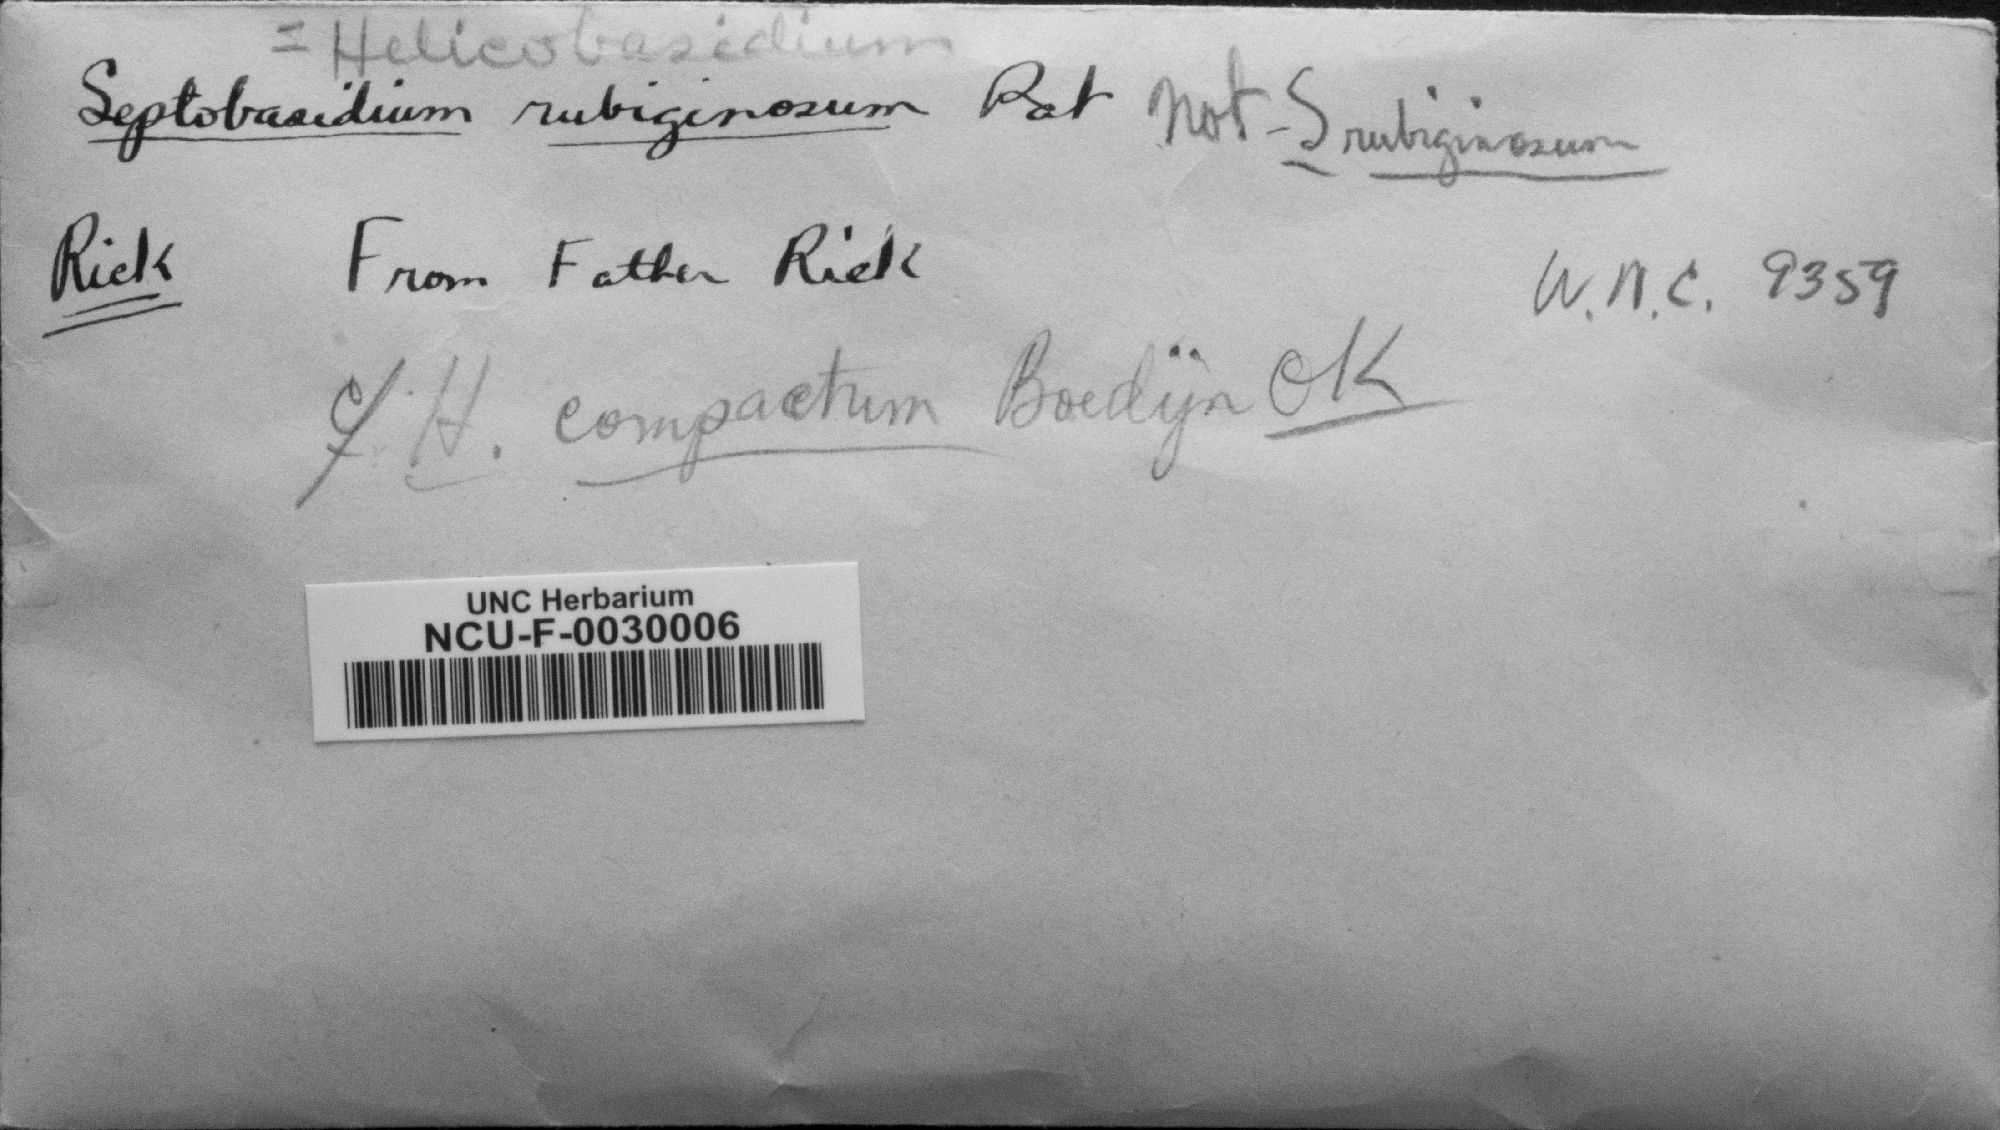 = Helicobasidium
Septobasidium rubiginosum Pat not - S rubiginosum
Rick From Father Rick
W.N.C. 9359
cf. H. compactum Boedijn OK
UNC Herbarium
NCU-F-0030006